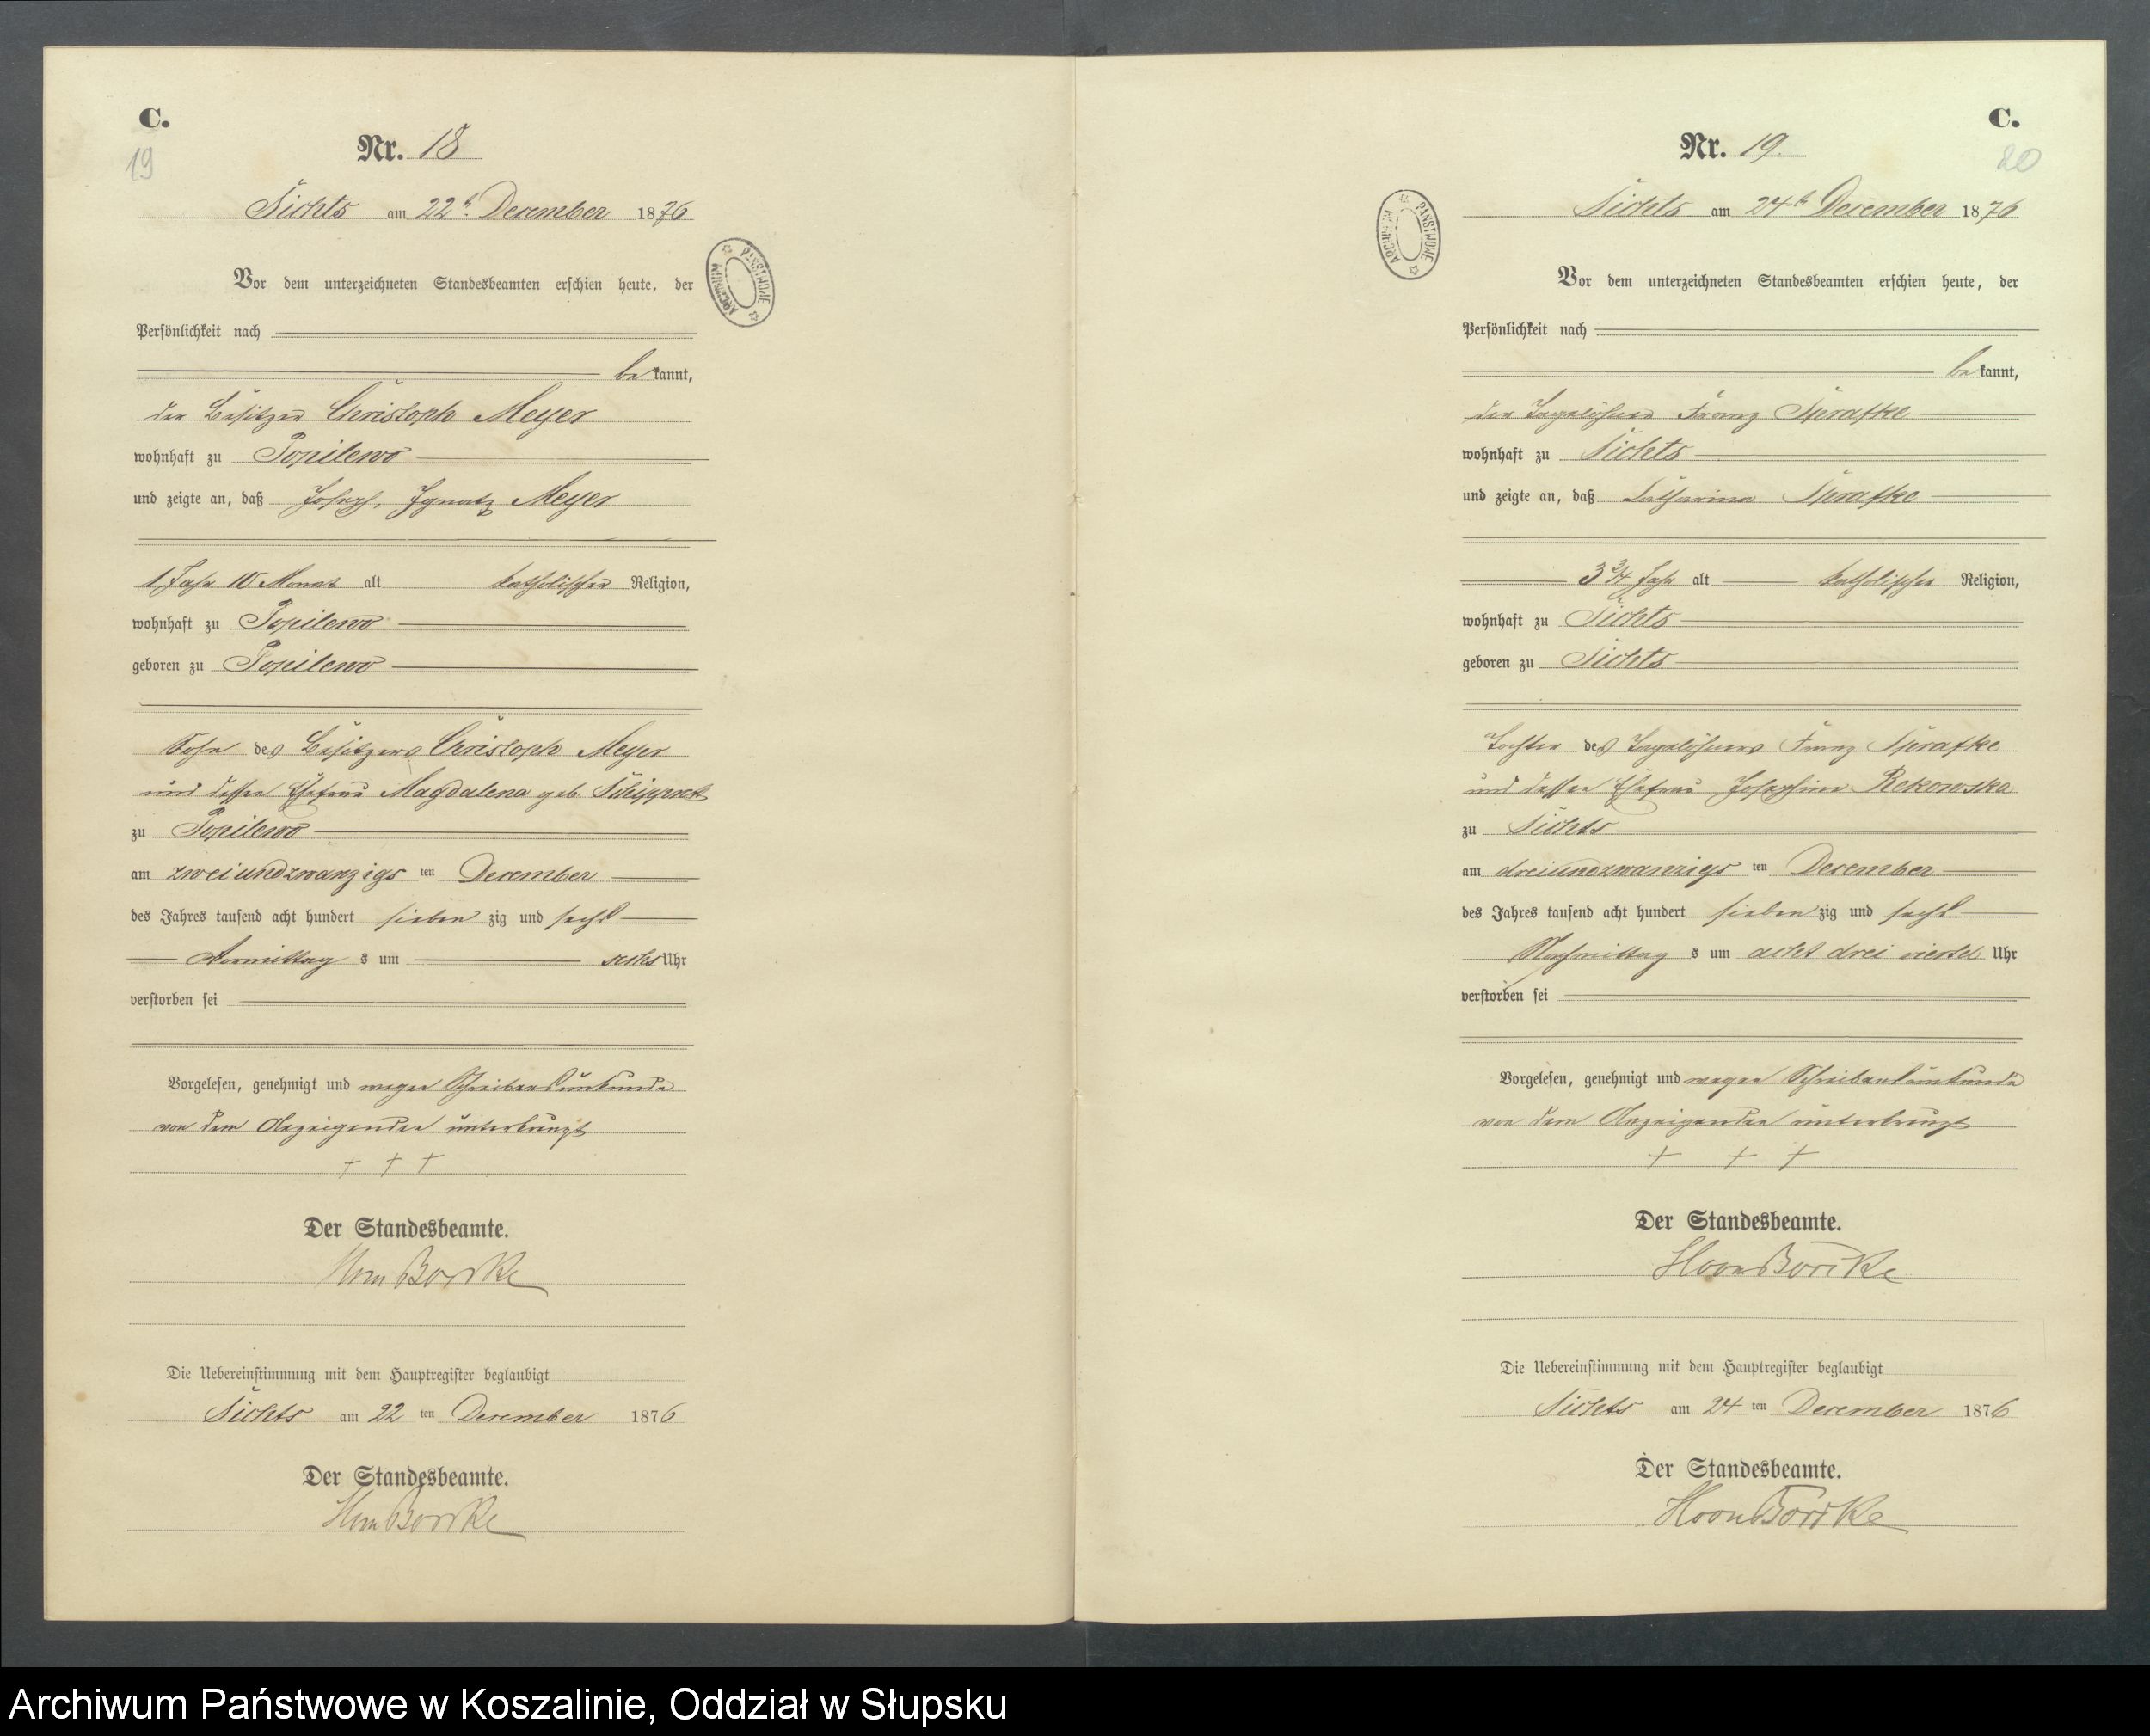 C.
19
Nr. 18
Sichts am 22t. December 1876
ARCHIWUM PAŃSTWOWE
Vor dem unterzeichneten Standesbeamten erschien heute, der
Persönlichkeit nach
bekannt,
der Besitzer Christoph Meyer
wohnhaft zu Popilewo
und zeigte an, daß Joseph, Ignatz Meyer
1 Jahr 10 Monat alt katholischer Religion,
wohnhaft zu Popilewo
geboren zu Popilewo
Sohn des Besitzers Christoph Meyer
und dessen Ehefrau Magdalena geb.
zu Popilewo
am zweiundzwanzigsten December
des Jahres tausend acht hundert siebenzig und sechs
Vormittags um sechs Uhr
verstorben sei
Vorgelesen, genehmigt und wegen Schreibensunkunde
von dem Anzeigenden unterkreuzt
+ + +
Der Standesbeamte.
Die Uebereinstimmung mit dem Hauptregister beglaubigt
Sichts am 22 ten December 1876
Der Standesbeamte.
C.
20
Nr. 19.
Sichts am 24t December 1876
ARCHIWUM PAŃSTWOWE
Vor dem unterzeichneten Standesbeamten erschien heute, der
Persönlichkeit nach
bekannt,
der Tagelöhner Franz
wohnhaft zu Sichts
und zeigte an, daß Catharina
3 3/4 Jahr alt katholischer Religion,
wohnhaft zu Sichts
geboren zu Sichts
Tochter des Tagelöhners Franz
und dessen Ehefrau Josephine Rekowska
zu Sichts
am dreiundzwanzigsten December
des Jahres tausend acht hundert siebenzig und sechs
Nachmittags um acht drei viertel Uhr
verstorben sei
Vorgelesen, genehmigt und wegen Schreibensunkunde
von dem Anzeigenden unterkreuzt
+ + +
Der Standesbeamte.
Die Uebereinstimmung mit dem Hauptregister beglaubigt
Sichts am 24 ten December 1876
Der Standesbeamte.
Archiwum Państwowe w Koszalinie, Oddział w Słupsku